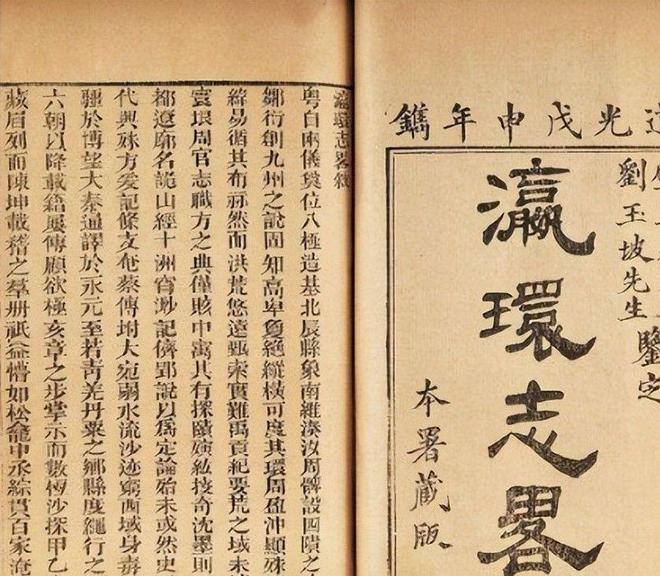 道光戊申年鐫
劉玉坡先生
鑒定
瀛環志畧
本署藏版
瀛環志畧叙
粤自兩儀奠位八極造基北辰縣象南維湊汝周髀設四隤之
鄒衍創九州之說固知高卑敻絶縱横可度其環周盈冲顯殊
緯易循其布列然而洪荒悠遠甄索實難禹貢紀要荒之域未
寰垠周官志職方之典僅賅中寓其有探賾紘按奇沈墨則
都遼廓名詭山經十洲窅渺記儕郢說以爲定論殆未或然史
代興殊方爰記條支奄蔡傳坿大宛弱水流沙迹窮西域身毒
疆於博望大秦通譯於永元至若青羌丹粟之鄉縣度繩行之
六朝以降載籍屢傳顧欲極亥章之步掌示而數恆沙探甲乙
藏眉列而陳坤載稽之羣册祇益懵如松龕中丞綜貫百家淹